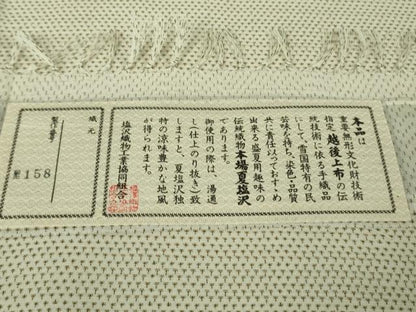 本品は
重要無形文化財技術
指定越後上布の伝
統技術に依る手織品
にして、雪国特有の民
芸味を持ち、染色・品質
共に責任以っておすゝめ
出来る盛夏用趣味の
伝統織物本場夏塩沢
であります。
御使用の際は、湯通
し(仕上のり抜き)致
しますと、夏塩沢独
特の涼味豊かな地風
が得られます。
塩沢織物工業協同組合
織元
製作番号
158